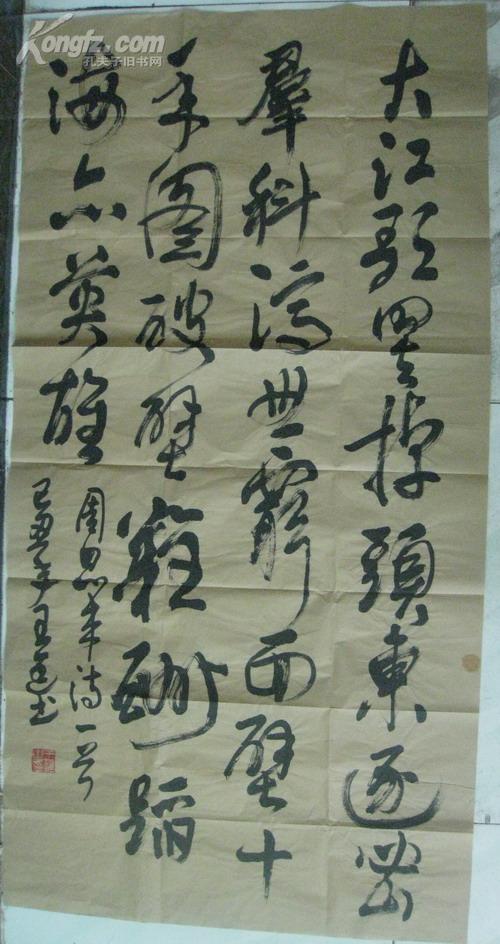 Kongfz.com
孔夫子旧书网
大江歌罢掉頭東邃密
羣科濟世窮面壁十
年圖破壁難酬蹈
海亦英雄
周恩来诗一首
己丑年王书